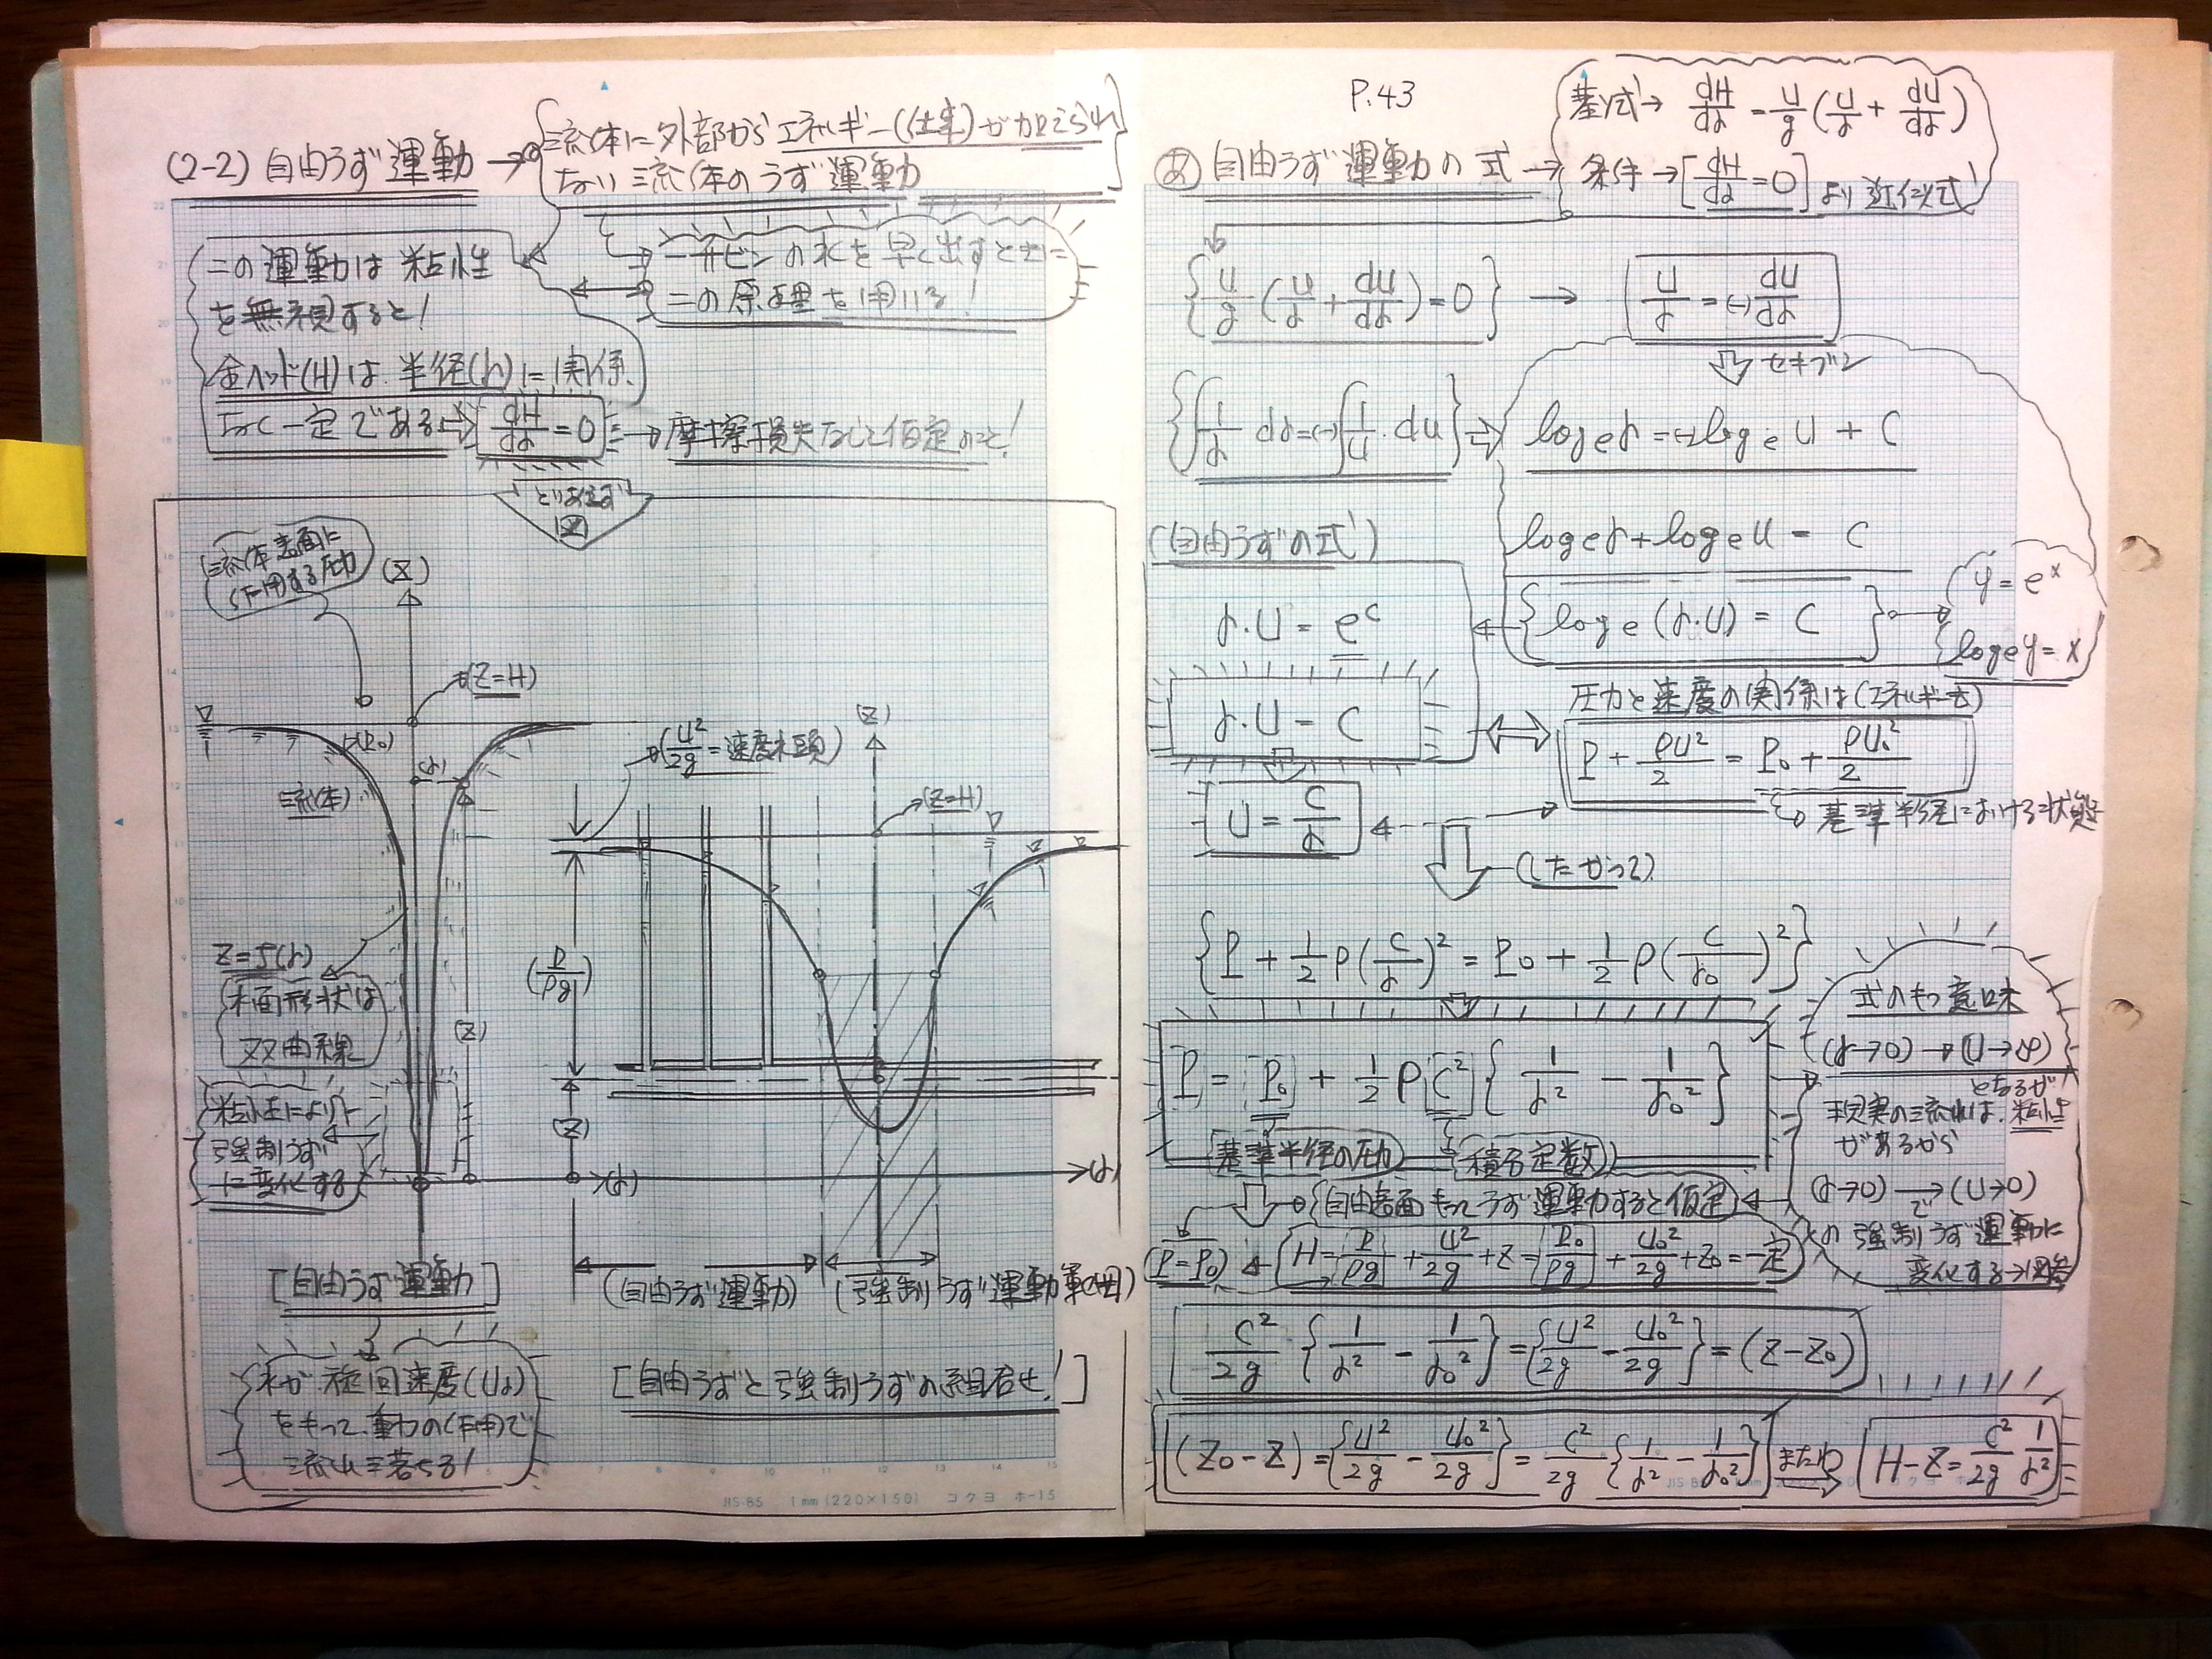 (2-2) 自由うず運動 → 流体に外部からエネルギー(仕事)が加えられ
ない流体のうず運動
一升ビンの水を早く出すときに
この原理を用いる!
この運動は粘性
を無視すると!
全ヘッド(H)は半径(r)に関係
なく一定である ⇨ dH/dr = 0 → 摩擦損失なしと仮定のこと!
とりあえず
図
流体表面に
作用する圧力
(Z)
(Z=H)
(P₀)
(r)
流体
Z=f(r)
水面形状は
双曲線
(Z)
粘性により
強制うず
に変化する
(r)
[自由うず運動]
水が旋回速度(Ur)
をもって重力の作用で
流れ落ちる!
(U²/2g = 速度水頭)
(Z)
(Z=H)
(P/ρg)
(Z)
(r)
(自由うず運動)
(強制うず運動範囲)
[自由うずと強制うずの組合せ!]
JIS-B5 1mm(220×150) コクヨ ホ-15
P.43
基式→ dH/dr = U/g (U/r + dU/dr)
あ 自由うず運動の式 → 条件→[dH/dr = 0] より近似式
{U/g (U/r + dU/dr) = 0} → U/r = (-) dU/dr
セキブン
{∫1/r dr = (-)∫1/U・dU} ⇨ loge r = (-) loge U + C
loge r + loge U = C
(自由うずの式)
{loge (r・U) = C}
y = eˣ
loge y = x
r・U = eᶜ
r・U = C
圧力と速度の関係は(エネルギー式)
P + ρU²/2 = P₀ + ρU₀²/2
基準半径における状態
U = C/r
(したがって)
{P + 1/2 ρ(C/r)² = P₀ + 1/2 ρ(C/r₀)²}
P = P₀ + 1/2 ρ C² {1/r² - 1/r₀²}
基準半径の圧力
積分定数
式のもつ意味
(r→0) → (U→∞)
となるが
現実の流れは、粘性
があるから
(r→0) → (U→0)
で
の強制うず運動に
変化する→
自由表面もってうず運動すると仮定
(P=P₀) ← {H = P/ρg + U²/2g + Z = P₀/ρg + U₀²/2g + Z₀ = 一定}
C²/2g {1/r² - 1/r₀²} = {U²/2g - U₀²/2g} = (Z-Z₀)
(Z₀-Z) = {U²/2g - U₀²/2g} = C²/2g {1/r² - 1/r₀²} または H-Z = C²/2g 1/r²